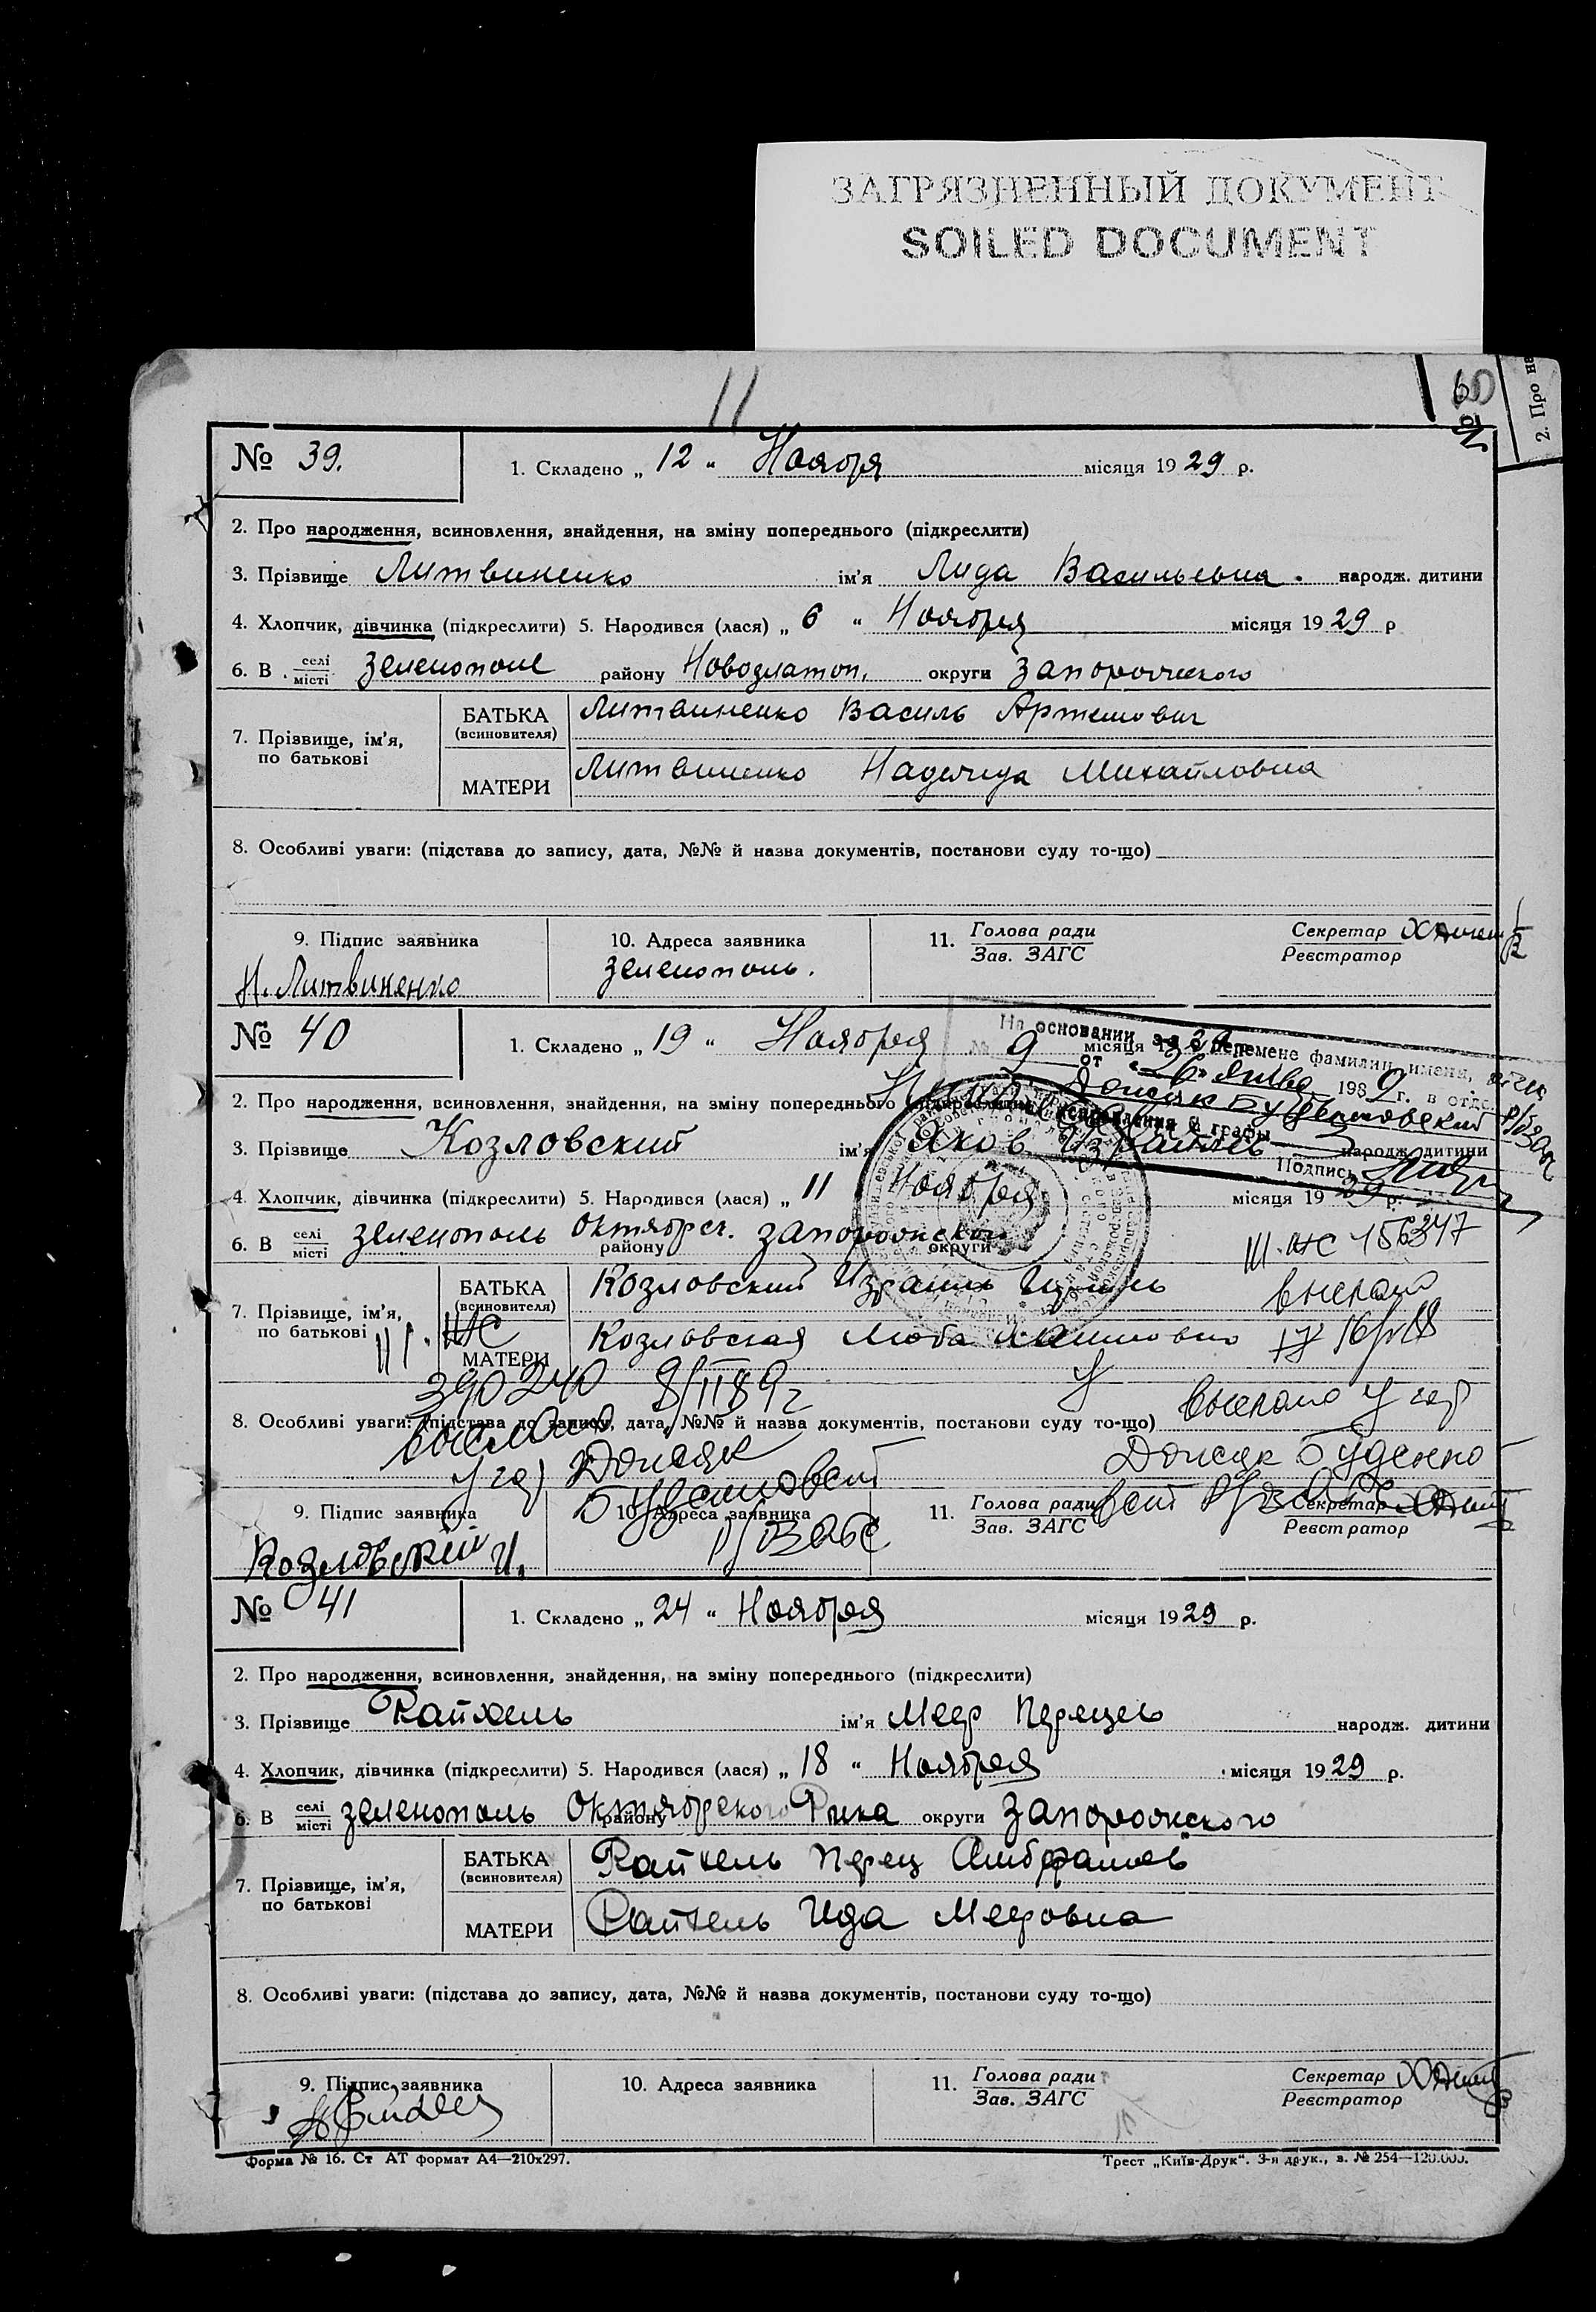 ЗАГРЯЗНЕННЫЙ ДОКУМЕНТ
SOILED DOCUMENT
11
2. Про на
№ 39.
1. Складено „ 12 “ Ноября місяця 1929 р.
2. Про народження, всиновлення, знайдення, на зміну попереднього (підкреслити)
3. Прізвище Литвиненко ім’я Лида Васильевна. народж. дитини
4. Хлопчик, дівчинка (підкреслити) 5. Народився (лася) „ 6 “ Ноября місяця 1929 р
6. В селі місті Зеленополе району Новозлатоп. округи Запорожского
7. Прізвище, ім’я, по батькові
БАТЬКА (всиновителя) Литвиненко Василь Артемович
МАТЕРИ Литвиненко Надежда Михайловна
8. Особливі уваги: (підстава до запису, дата, №№ й назва документів, постанови суду то-що)
9. Підпис заявника
10. Адреса заявника
11. Голова ради Зав. ЗАГС
Секретар Реєстратор
Н. Литвиненко
Зеленополь.
№ 40
1. Складено „ 19 “ Ноября місяця
На основании о перемене фамилии, имени,
№ 9 от 26 января 1989 г. в отд.
Донецк Буденновский
исправления в графы 3
Подпись
2. Про народження, всиновлення, знайдення, на зміну попереднього
3. Прізвище Козловский ім’я Яков Израилев народж. дитини
4. Хлопчик, дівчинка (підкреслити) 5. Народився (лася) „ 11 Ноября місяця 1929 р.
6. В селі місті Зеленополь Октябрск. району Запорожской округи
III-ЖС 156347
7. Прізвище, ім’я, по батькові
БАТЬКА (всиновителя) Козловский Израиль
выслано
МАТЕРИ Козловская Люба
III. ЖС
390240 8/II 89 г
8. Особливі уваги: (підстава до запису, дата, №№ й назва документів, постанови суду то-що)
выслано
Донецк
Донецк Буденно
Буденновский
9. Підпис заявника
10. Адреса заявника
11. Голова ради Зав. ЗАГС
Секретар Реєстратор
Козловский И.
р/ЗАГС
№ 41
1. Складено „ 24 “ Ноября місяця 1929 р.
2. Про народження, всиновлення, знайдення, на зміну попереднього (підкреслити)
3. Прізвище Райхель ім’я Меер Перецев народж. дитини
4. Хлопчик, дівчинка (підкреслити) 5. Народився (лася) „ 18 “ Ноября місяця 1929 р.
6. В селі місті Зеленополь Октябрского Рика району округи Запорожского
7. Прізвище, ім’я, по батькові
БАТЬКА (всиновителя) Райхель Перец
МАТЕРИ Райхель Ида Мееровна
8. Особливі уваги: (підстава до запису, дата, №№ й назва документів, постанови суду то-що)
9. Підпис заявника
10. Адреса заявника
11. Голова ради Зав. ЗАГС
Секретар Реєстратор
Форма № 16. Ст АТ формат А4—210х297.
Трест „Київ-Друк“. 3-я друк., з. № 254—120.000.